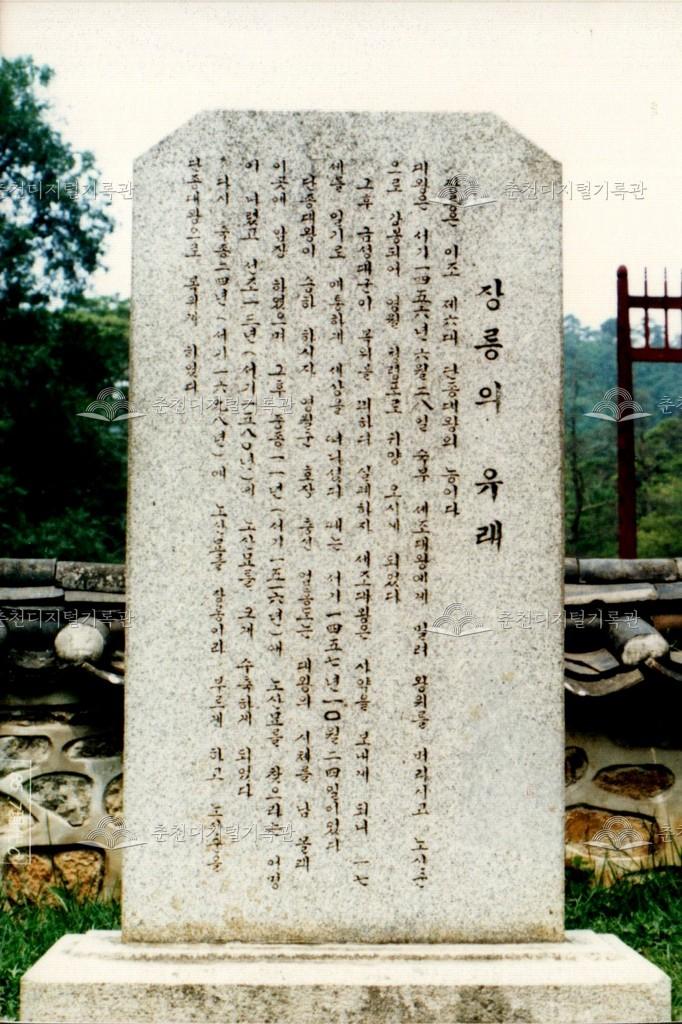 장릉의 유래
장릉은 이조 제六대 단종대왕의 능이다
대왕은 서기一四五六년 六월 二八일 숙부 세조대왕에게 밀려 왕위를 버리시고 노산군
으로 강봉되어 영월 청령포로 귀양 오시게 되었다
그후 금성대군이 복위를 꾀하다 실패하자 세조대왕은 사약을 보내게 되니 一七
세를 일기로 애통하게 세상을 떠나셨다 때는 서기一四五七년 一0월 二四일이었다
단종대왕이 승하 하시자 영월군 호장 충신 엄흥도는 대왕의 시체를 남 몰래
이곳에 안장 하였으며 그후 중종一一년(서기一五一六년)에 노산묘를 찾으라는 어명
이 나렸고 선조一三년(서기一五八0년)에 노산묘를 크게 수축하게 되었다
다시 숙종二四년(서기一六九八년)에 노산묘를 장릉이라 부르게 하고 노산군을
단종대왕으로 복위케 하였다
춘천디지털기록관
춘천디지털기록관
춘천디지털기록관
춘천디지털기록관
춘천디지털기록관
춘천디지털기록관
춘천디지털기록관
춘
춘